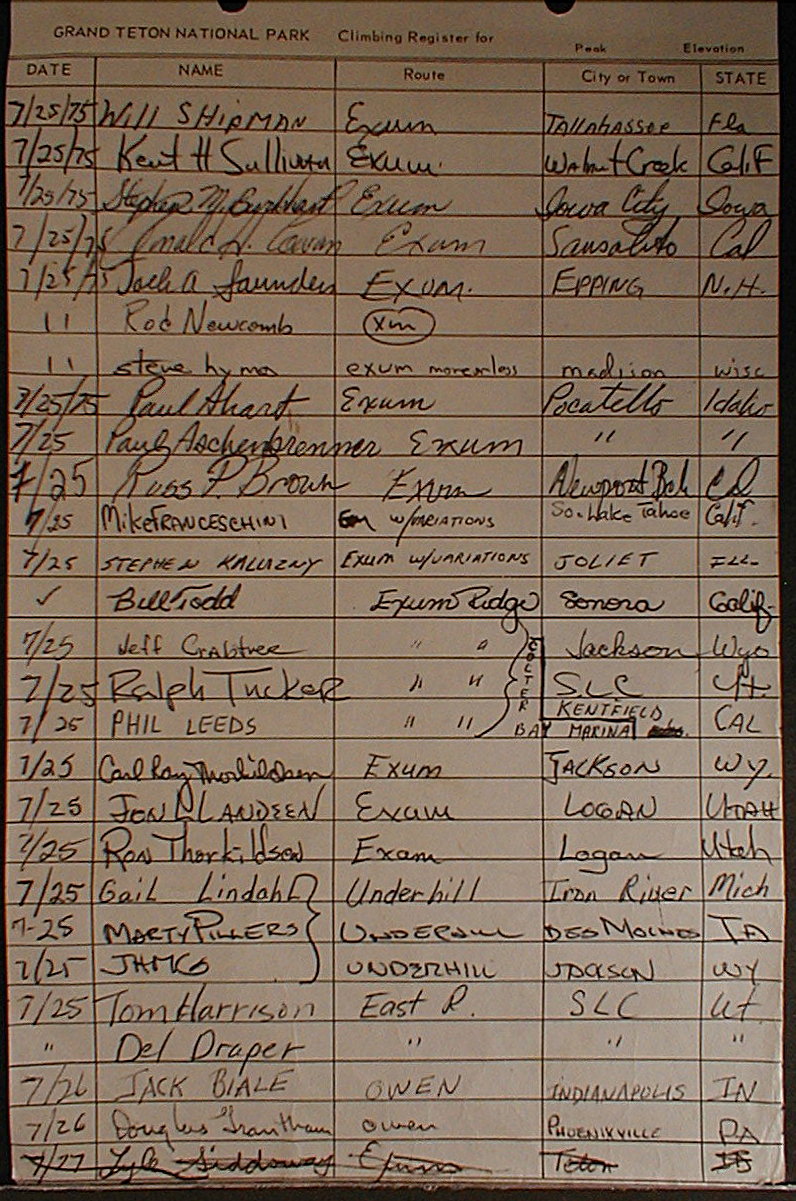 GRAND TETON NATIONAL PARK Climbing Register for Peak Elevation
DATE NAME Route City or Town STATE
7/25/75 Will SHIPMAN Exum TAllAhASSee Fla
7/25/75 Kent H Sullivan Exum Walnut Creek Calif
7/25/75 Stephen M. Burkhart Exum Iowa City Iowa
7/25/75 H. Exum Sausalito Cal
7/25/75 Jack A Saunders EXUM. EPPING N.H.
11 Rod Newcomb Xm
11 steve hyma exum moreorless madison wisc
7/25/75 Paul Ahart Exum Pocatello Idaho
7/25 Paul Aschenbrenner Exum " "
7/25 Russ P. Brown Exum Newport Bch Cal
7/25 Mike FRANCESCHINI w/VARIATIONS So. Lake Tahoe Calif.
7/25 STEPHEN KALLAZNY EXUM W/VARIATIONS JOLIET ILL-
✓ Bill Todd Exum Ridge Sonora Calif-
7/25 Jeff Crabtree " " Jackson Wyo
7/25 Ralph Tucker " " SLC Ut.
COLTER
KENTFIELD
7/25 PHIL LEEDS " " BAY MARINA CAL
7/25 Carl Ray Thorkildsen Exum JACKSON WY.
7/25 JON L LANDEEN Exum LOGAN UTAH
7/25 Ron Thorkildsen Exam Logan Utah
7/25 Gail Lindahl Underhill Iron River Mich
7-25 MARTY PILLERS UNDERHILL DES MOINES IA
7/25 UNDERHILL JACKSON WY
7/25 Tom Harrison East R. SLC Ut
" Del Draper " " "
7/26 JACK BIALE OWEN INDIANAPOLIS IN
7/26 Douglas Grantham owen PHOENIXVILLE PA
7/27 Lyle Siddoway Exum Teton